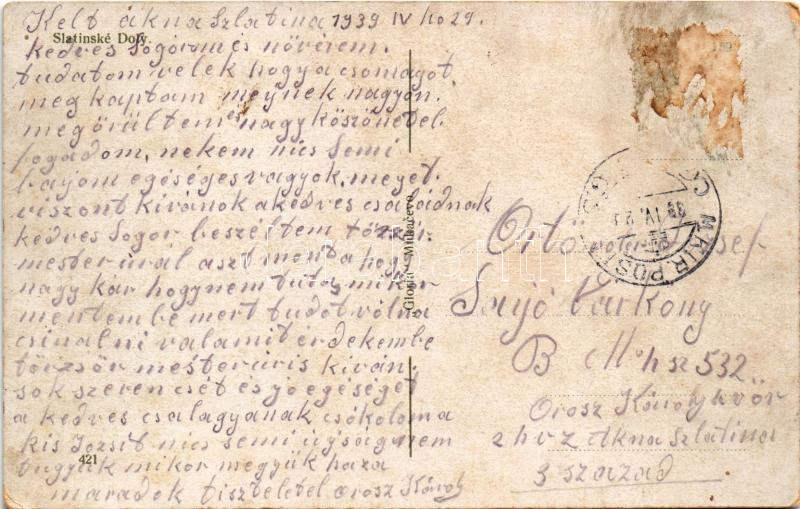 Kelt akna Szlatina 1939 IV hó 29.
Slatinské Doly.
kedves Sógorom és nővérem.
tudatom velek hogy a csomagot
meg kaptam mejnek nagyon.
megörültem és nagy köszönetel
fogadom, nekem nics semi
bajom egéséges vagyok, mejet.
viszont kivánok a kedves családnak
kedves Sogor beszéltem törzsör
mester úral aszt monta hogy
nagy kár hogy nem tuta mikor
mentem be mert tudot vólna
csinalni valamit érdekembe
törzsör mester úris kiván.
sok szerencsét és jó egéséget
a kedves csalagyanak csókoloma
kis Jozsit nics semi ujság nem
tugyuk mikor megyük haza
421
maradok tisztelettel orosz Károly
"Gloria" Mukačevo
M. KIR. POSTA
Sajó Várkony
B M. hsz 532.
Orosz Károly
2 hvz Akna Szlatina
3 szazad